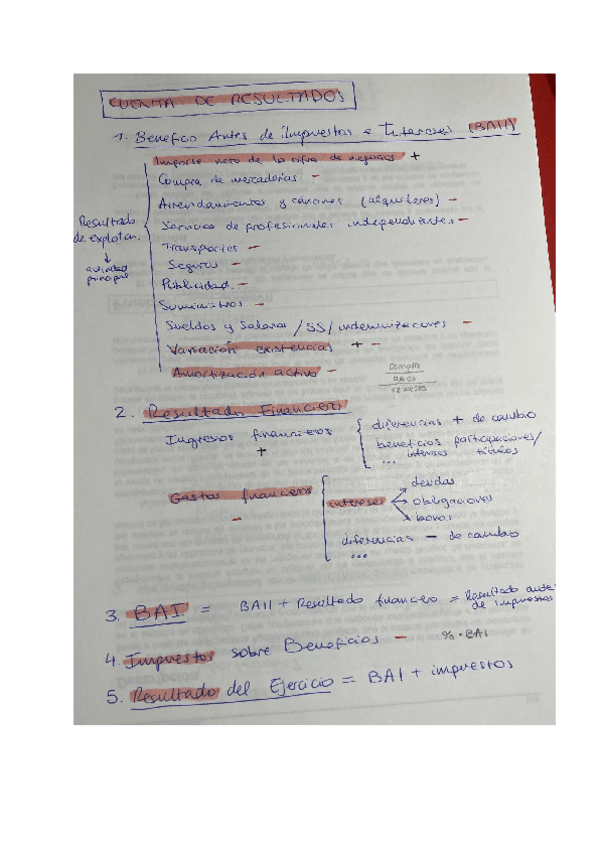 CUENTA DE RESULTADOS
1. Beneficio Antes de Impuestos e Intereses (BAII)
Importe neto de la cifra de negocios +
Compra de mercaderías -
Arrendamientos y cánones (alquileres) -
Servicios de profesionales independientes -
Transportes -
Seguros -
Publicidad -
Suministros -
Sueldos y Salarios / SS / indemnizaciones -
Variación existencias + -
Amortización activo -
Compra
años
12 meses
Resultado
de explotan.
↓
actividad
principal
2. Resultado Financiero
Ingresos financieros
+
diferencias + de cambio
beneficios participaciones /
... intereses
Gastos financieros
-
intereses
deudas
obligaciones
bonos
diferencias - de cambio
...
3. BAI = BAII + Resultado financiero = Resultado antes
de impuestos
4. Impuestos sobre Beneficios - % · BAI
5. Resultado del Ejercicio = BAI + impuestos